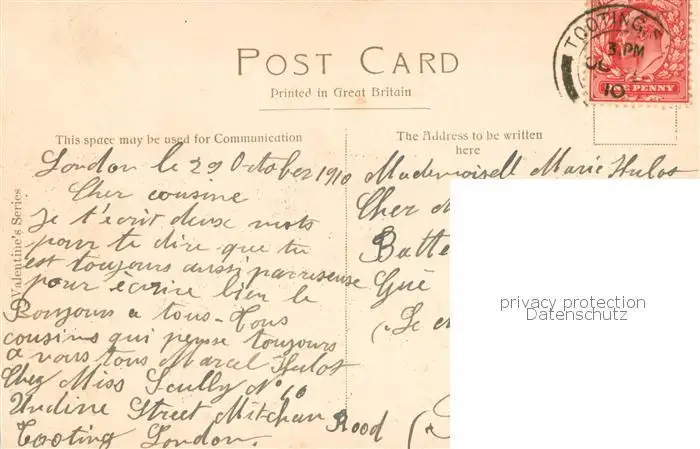 TOOTING. S
3 PM
OC
10
ONE PENNY
POST CARD
Printed in Great Britain
This space may be used for Communication
The Address to be written
here
Valentine's Series
London le 29 October 1910
Cher cousine
Je t'écrit deux mots
pour te dire que tu
est toujours aussi parresseuse
pour écrire bien le
Bonjours a tous. Tous
cousins qui pense toujours
a vous tous Marcel Hulot
Chez Miss Scully N° 60
Undine Street Mitchan Rood
Tooting London.
Mademoisell Marie Hulot
Cher M
Batte
Gué
(Le
privacy protection
Datenschutz